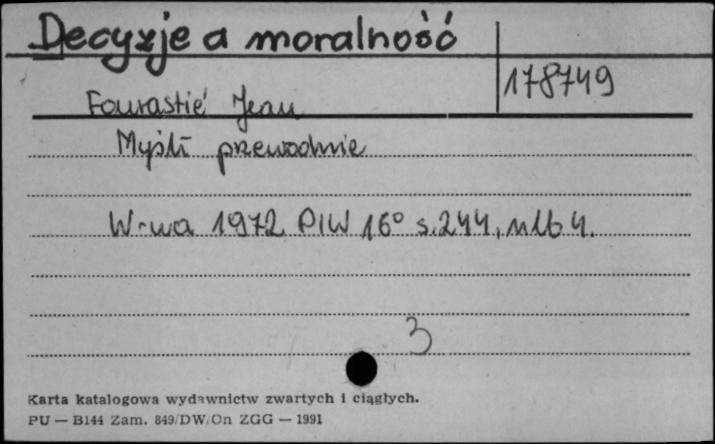 Decyzje a moralność
178749
Fourastié Jean
Myśli przewodnie
W-wa 1972 PIW 16° s. 244, nlb 4.
3
Karta katalogowa wydawnictw zwartych i ciągłych.
PU — B144 Zam. 849/DW/On ZGG — 1991